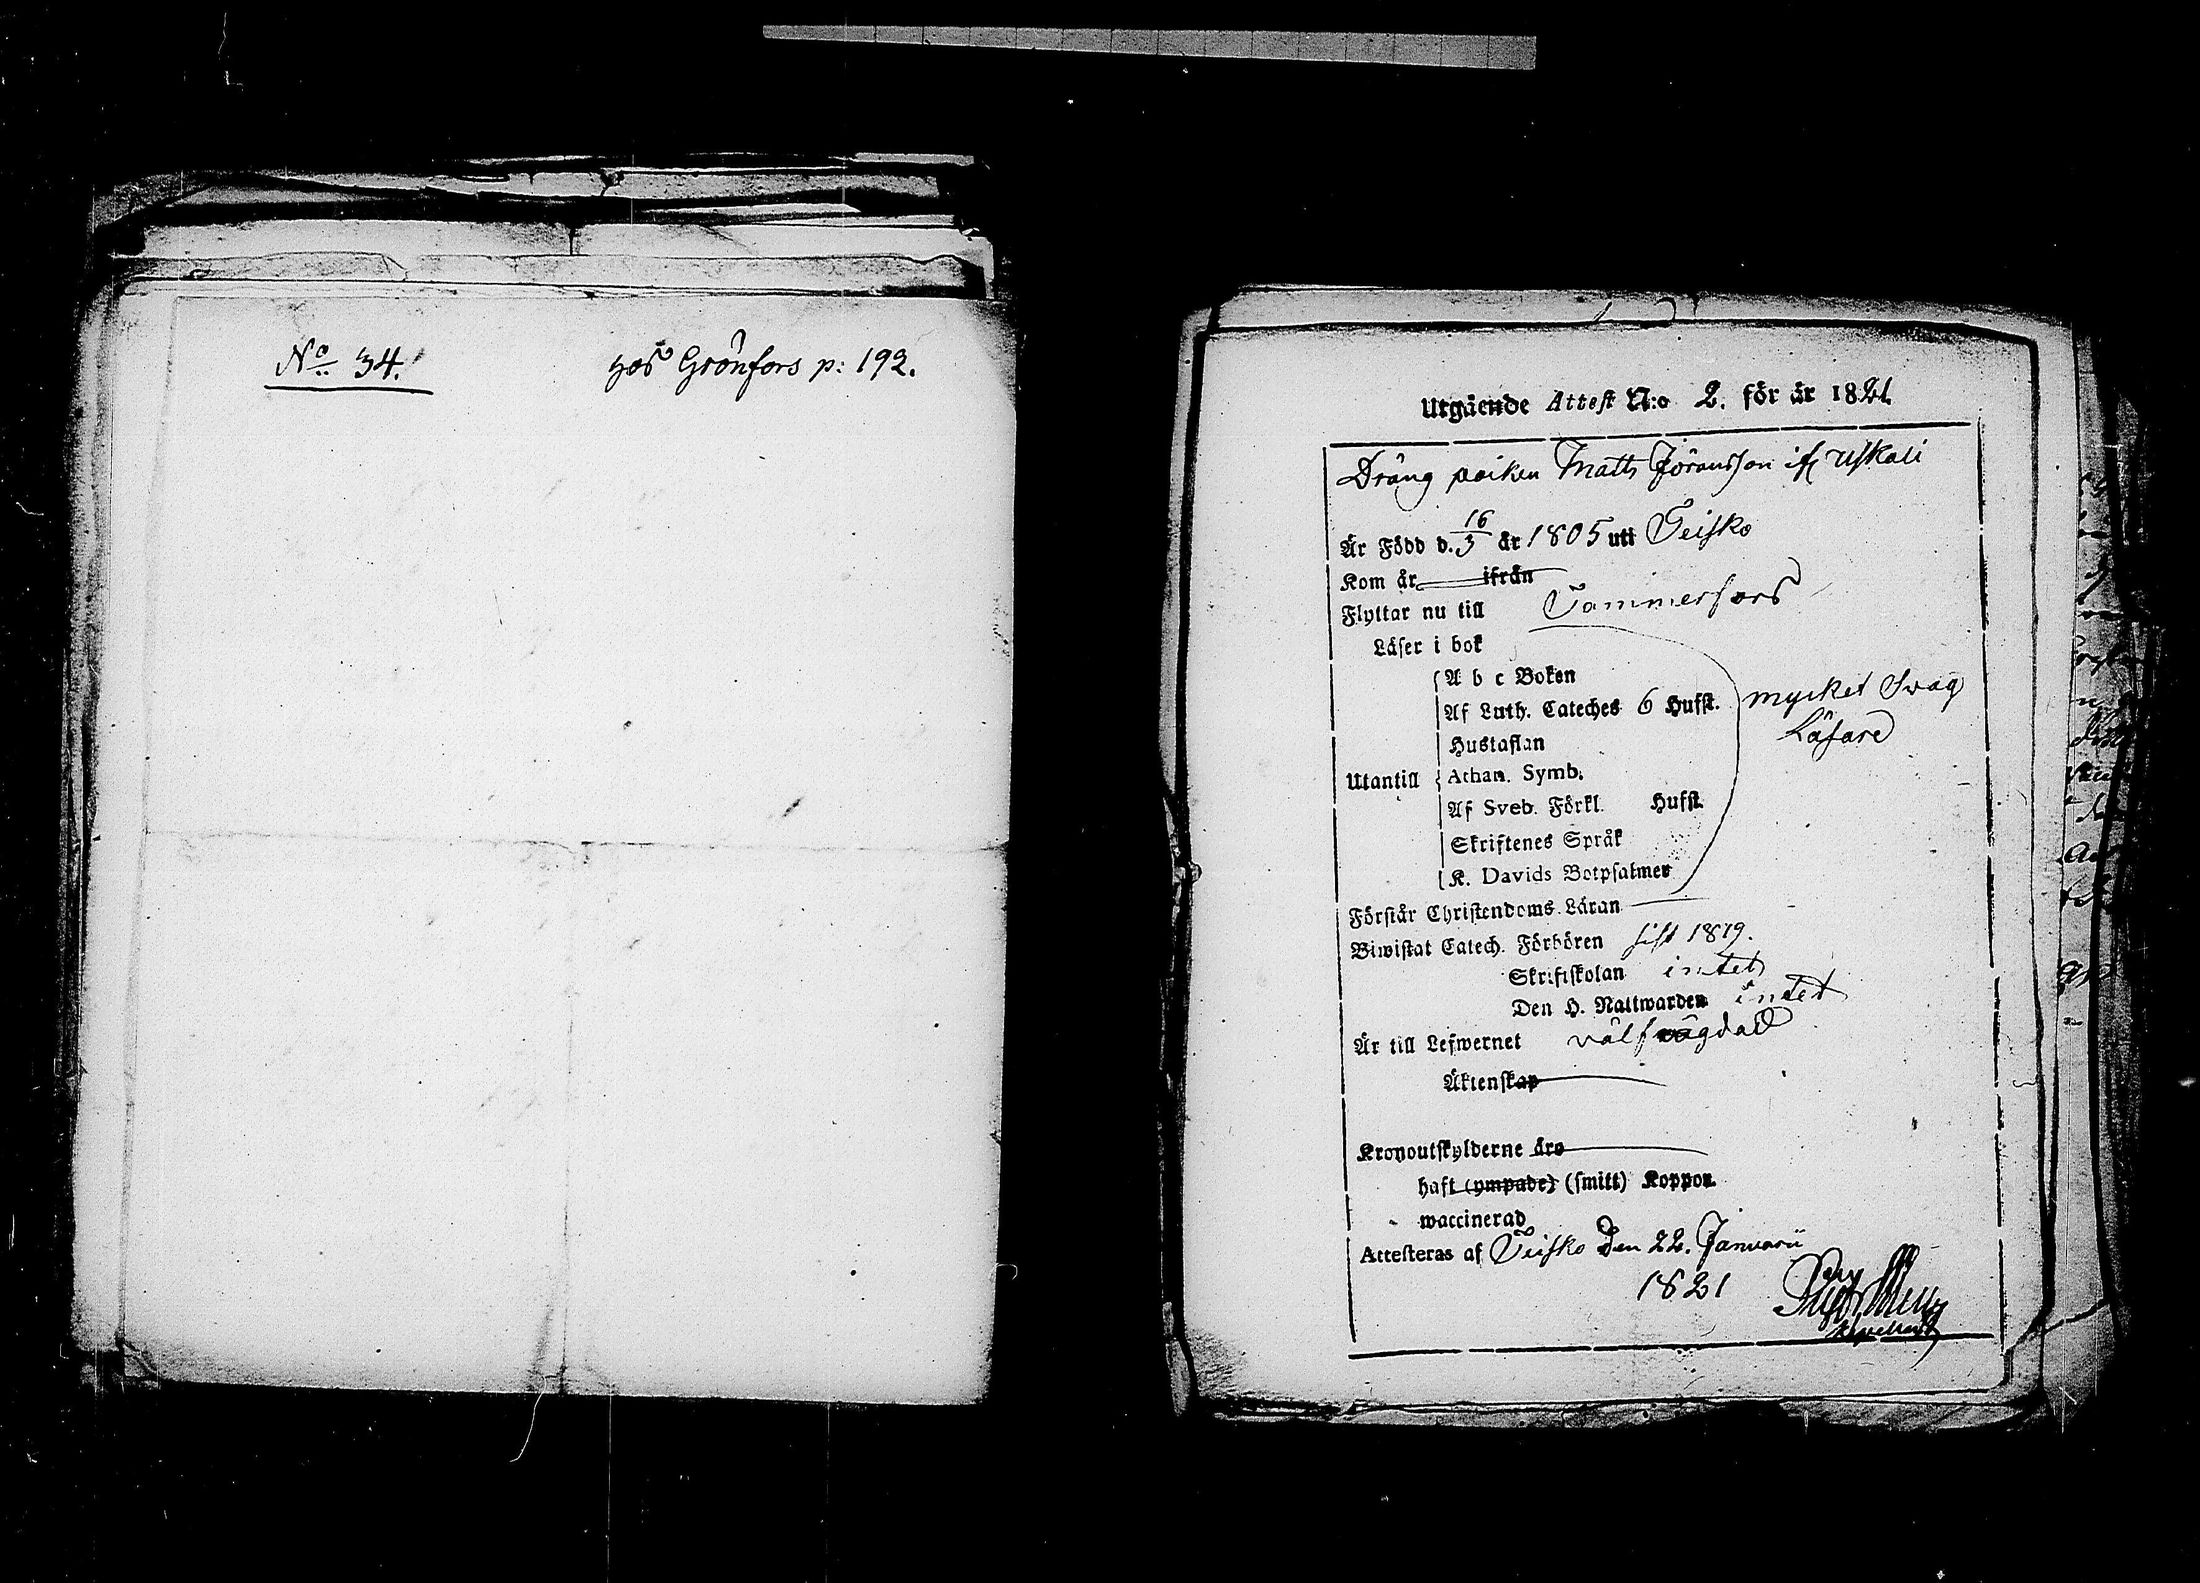 No 34.
hos Grönfors p: 192.
Utgående Attest N:o 2. för år 1821.
Dräng poiken Matts Jöransson if. Uskali
Är Född d. 16/3 år 1805 uti Teisko
Kom år ifrån
Flyttar nu till Tammerfors
Läser i bok
A b c Boken
Af Luth. Cateches 6 Hufst. mycket svag
Hustaflan Läsare
Utantill Athan. Symb.
Af Sveb. Förkl. Hufst.
Skriftenes Språk
K. Davids Botpsalmer
Förstår Christendoms Läran
Biwistat Catech. Förhören sist 1819.
Skriftskolan intet
Den H. Nattwarden intet
Är till Lefwernet välfrägdad
Äktenskap
Kronoutskylderne äro
haft (ympade) (smitt) Koppor
waccinerad
Attesteras af Teisko den 22. Januarii
1821